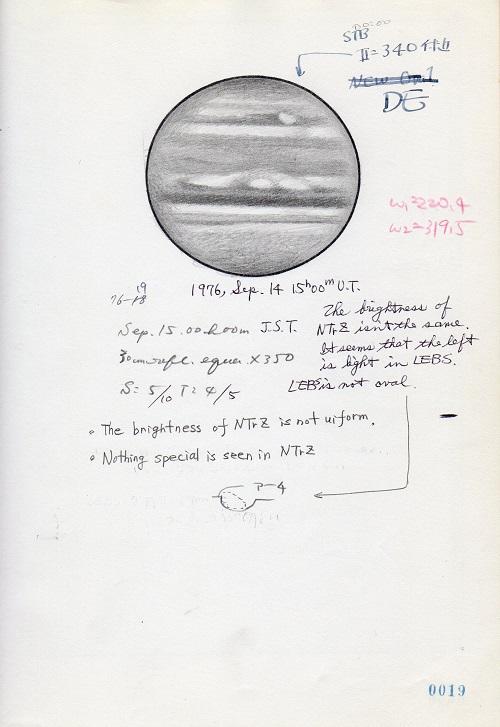 STB
II=340付近
DE
ω1=220.4
ω2=319.5
1976, Sep. 14 15h00m U.T.
19
76-18
Sep. 15. 00h00m J.S.T.
30cm refl. equer. X350
S=5/10 T=4/5
The brightness of
NTrZ isn't the same.
It seems that the left
is light in LEBS.
LEBS is not oval.
• The brightness of NTrZ is not uiform.
• Nothing special is seen in NTrZ
P-4
0019